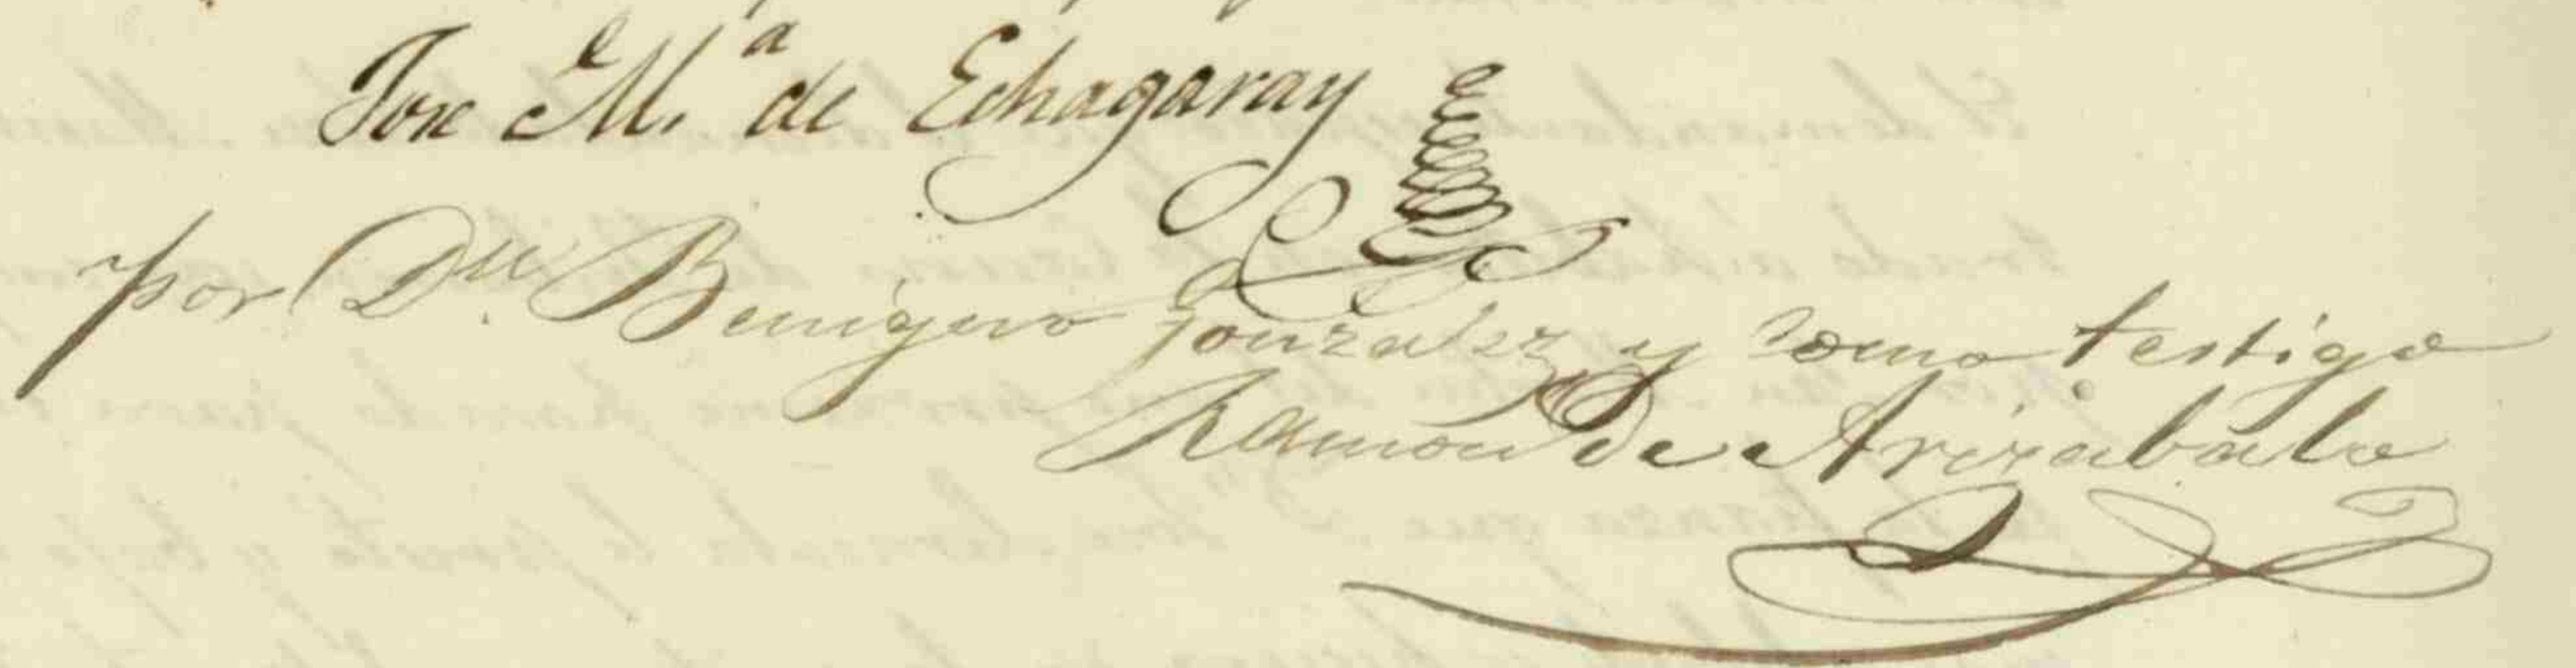 Jose M.ª de Echagaray
por Dn. Benigno Gonzalez y como testigo
Ramon de Arizabalo